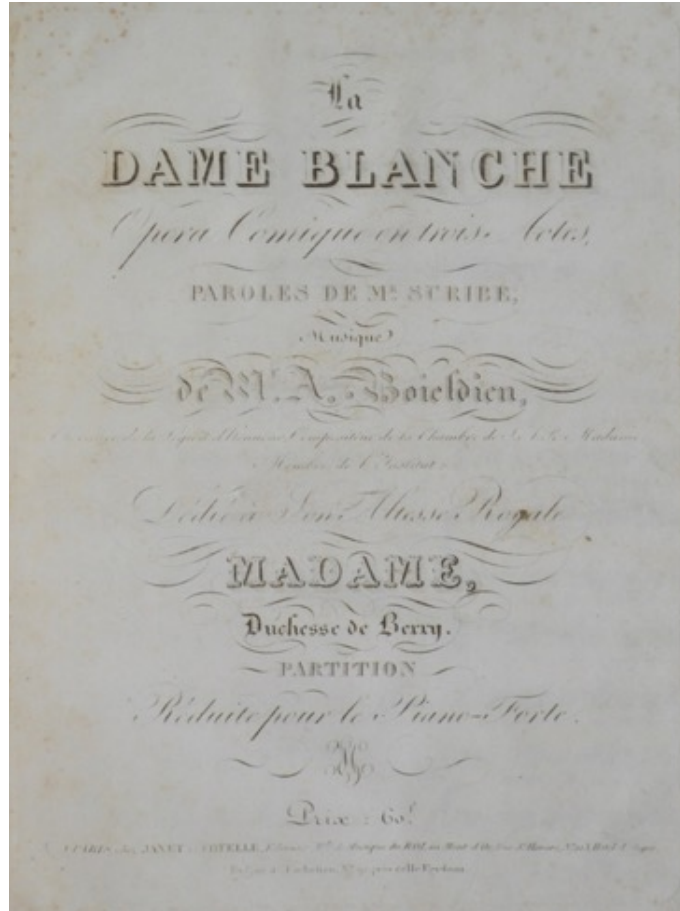 La
DAME BLANCHE
Opéra Comique en trois Actes,
PAROLES DE Mr. SCRIBE,
Musique
de Mr. A. Boieldieu,
de la Légion d'Honneur, Compositeur de la Chambre de S. A. R. Madame
Membre de l'Institut.
Dédié à Son Altesse Royale
MADAME,
Duchesse de Berry.
PARTITION
Réduite pour le Piano-Forte.
Prix : 60f.
A PARIS chez JANET et COTELLE, Mds. de Musique du ROI, au Mont d'Or, Rue St. Honoré,